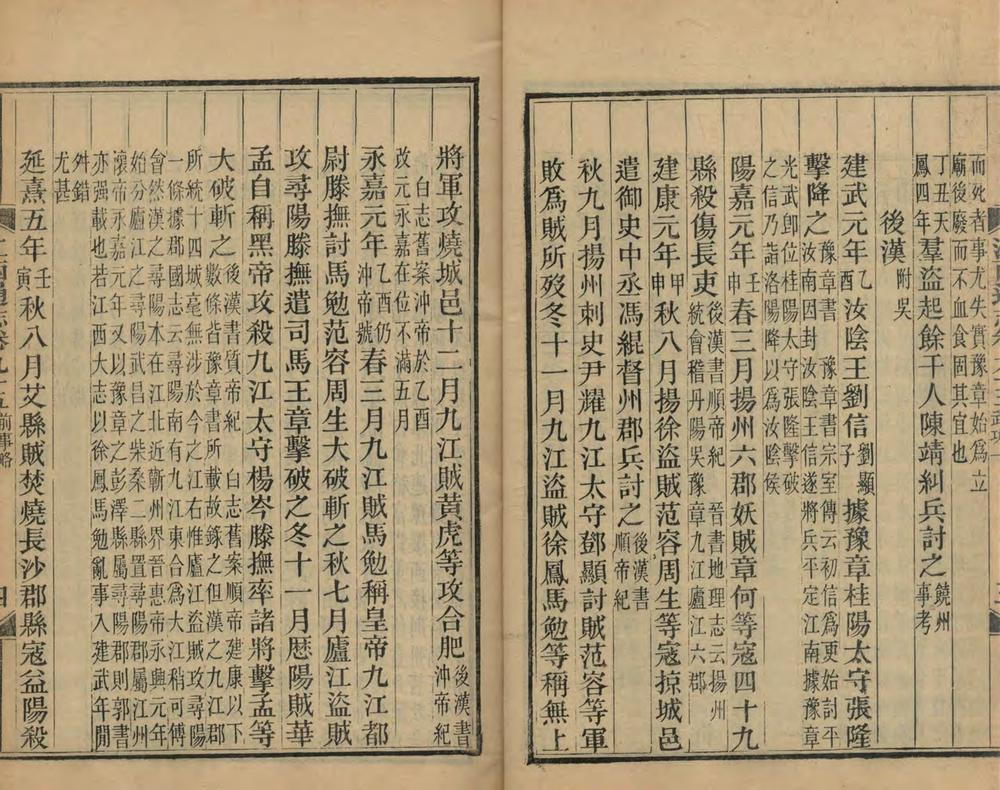 而死者事尤失實豫章始爲立
廟後廢而不血食固其宜也
丁丑天鳳四年羣盜起餘千人陳靖糾兵討之饒州事考
後漢附吳
建武元年乙酉汝陰王劉信劉顯子據豫章桂陽太守張隆
擊降之豫章書 豫章書宗室傳云初信爲更始討平汝南因封汝陰王信遂將兵平定江南據豫章
光武卽位桂陽太守張隆擊破之信乃詣洛陽降以爲汝陰侯
陽嘉元年壬申春三月揚州六郡妖賊章何等寇四十九
縣殺傷長吏後漢書順帝紀 晉書地理志云揚州統會稽丹陽吳豫章九江廬江六郡
建康元年甲申秋八月揚徐盜賊范容周生等寇掠城邑
遣御史中丞馮緄督州郡兵討之後漢書順帝紀
秋九月揚州刺史尹耀九江太守鄧顯討賊范容等軍
敗爲賊所歿冬十一月九江盜賊徐鳳馬勉等稱無上
將軍攻燒城邑十二月九江賊黃虎等攻合肥後漢書沖帝紀
白志舊案沖帝於乙酉改元永嘉在位不滿五月
永嘉元年乙酉仍沖帝號春三月九江賊馬勉稱皇帝九江都
尉滕撫討馬勉范容周生大破斬之秋七月廬江盜賊
攻尋陽滕撫遣司馬王章擊破之冬十一月歷陽賊華
孟自稱黑帝攻殺九江太守楊岑滕撫率諸將擊孟等
大破斬之後漢書質帝紀 白志舊案順帝建康以下數條皆豫章書所載故錄之但漢之九江郡
所統十四城毫無涉於今之江右惟廬江盜賊攻尋陽一條據郡國志云尋陽南有九江東合爲大江稍可傅
會然漢之尋陽本在江北近蘄州界晉惠帝永興元年始分廬江之尋陽武昌之柴桑二縣置尋陽郡屬江州
懷帝永嘉元年又以豫章之彭澤縣屬尋陽郡則郭書亦强載也若江西大志以徐鳳馬勉亂事入建武年閒
舛錯尤甚
延熹五年壬寅秋八月艾縣賊焚燒長沙郡縣寇益陽殺
前事略
四